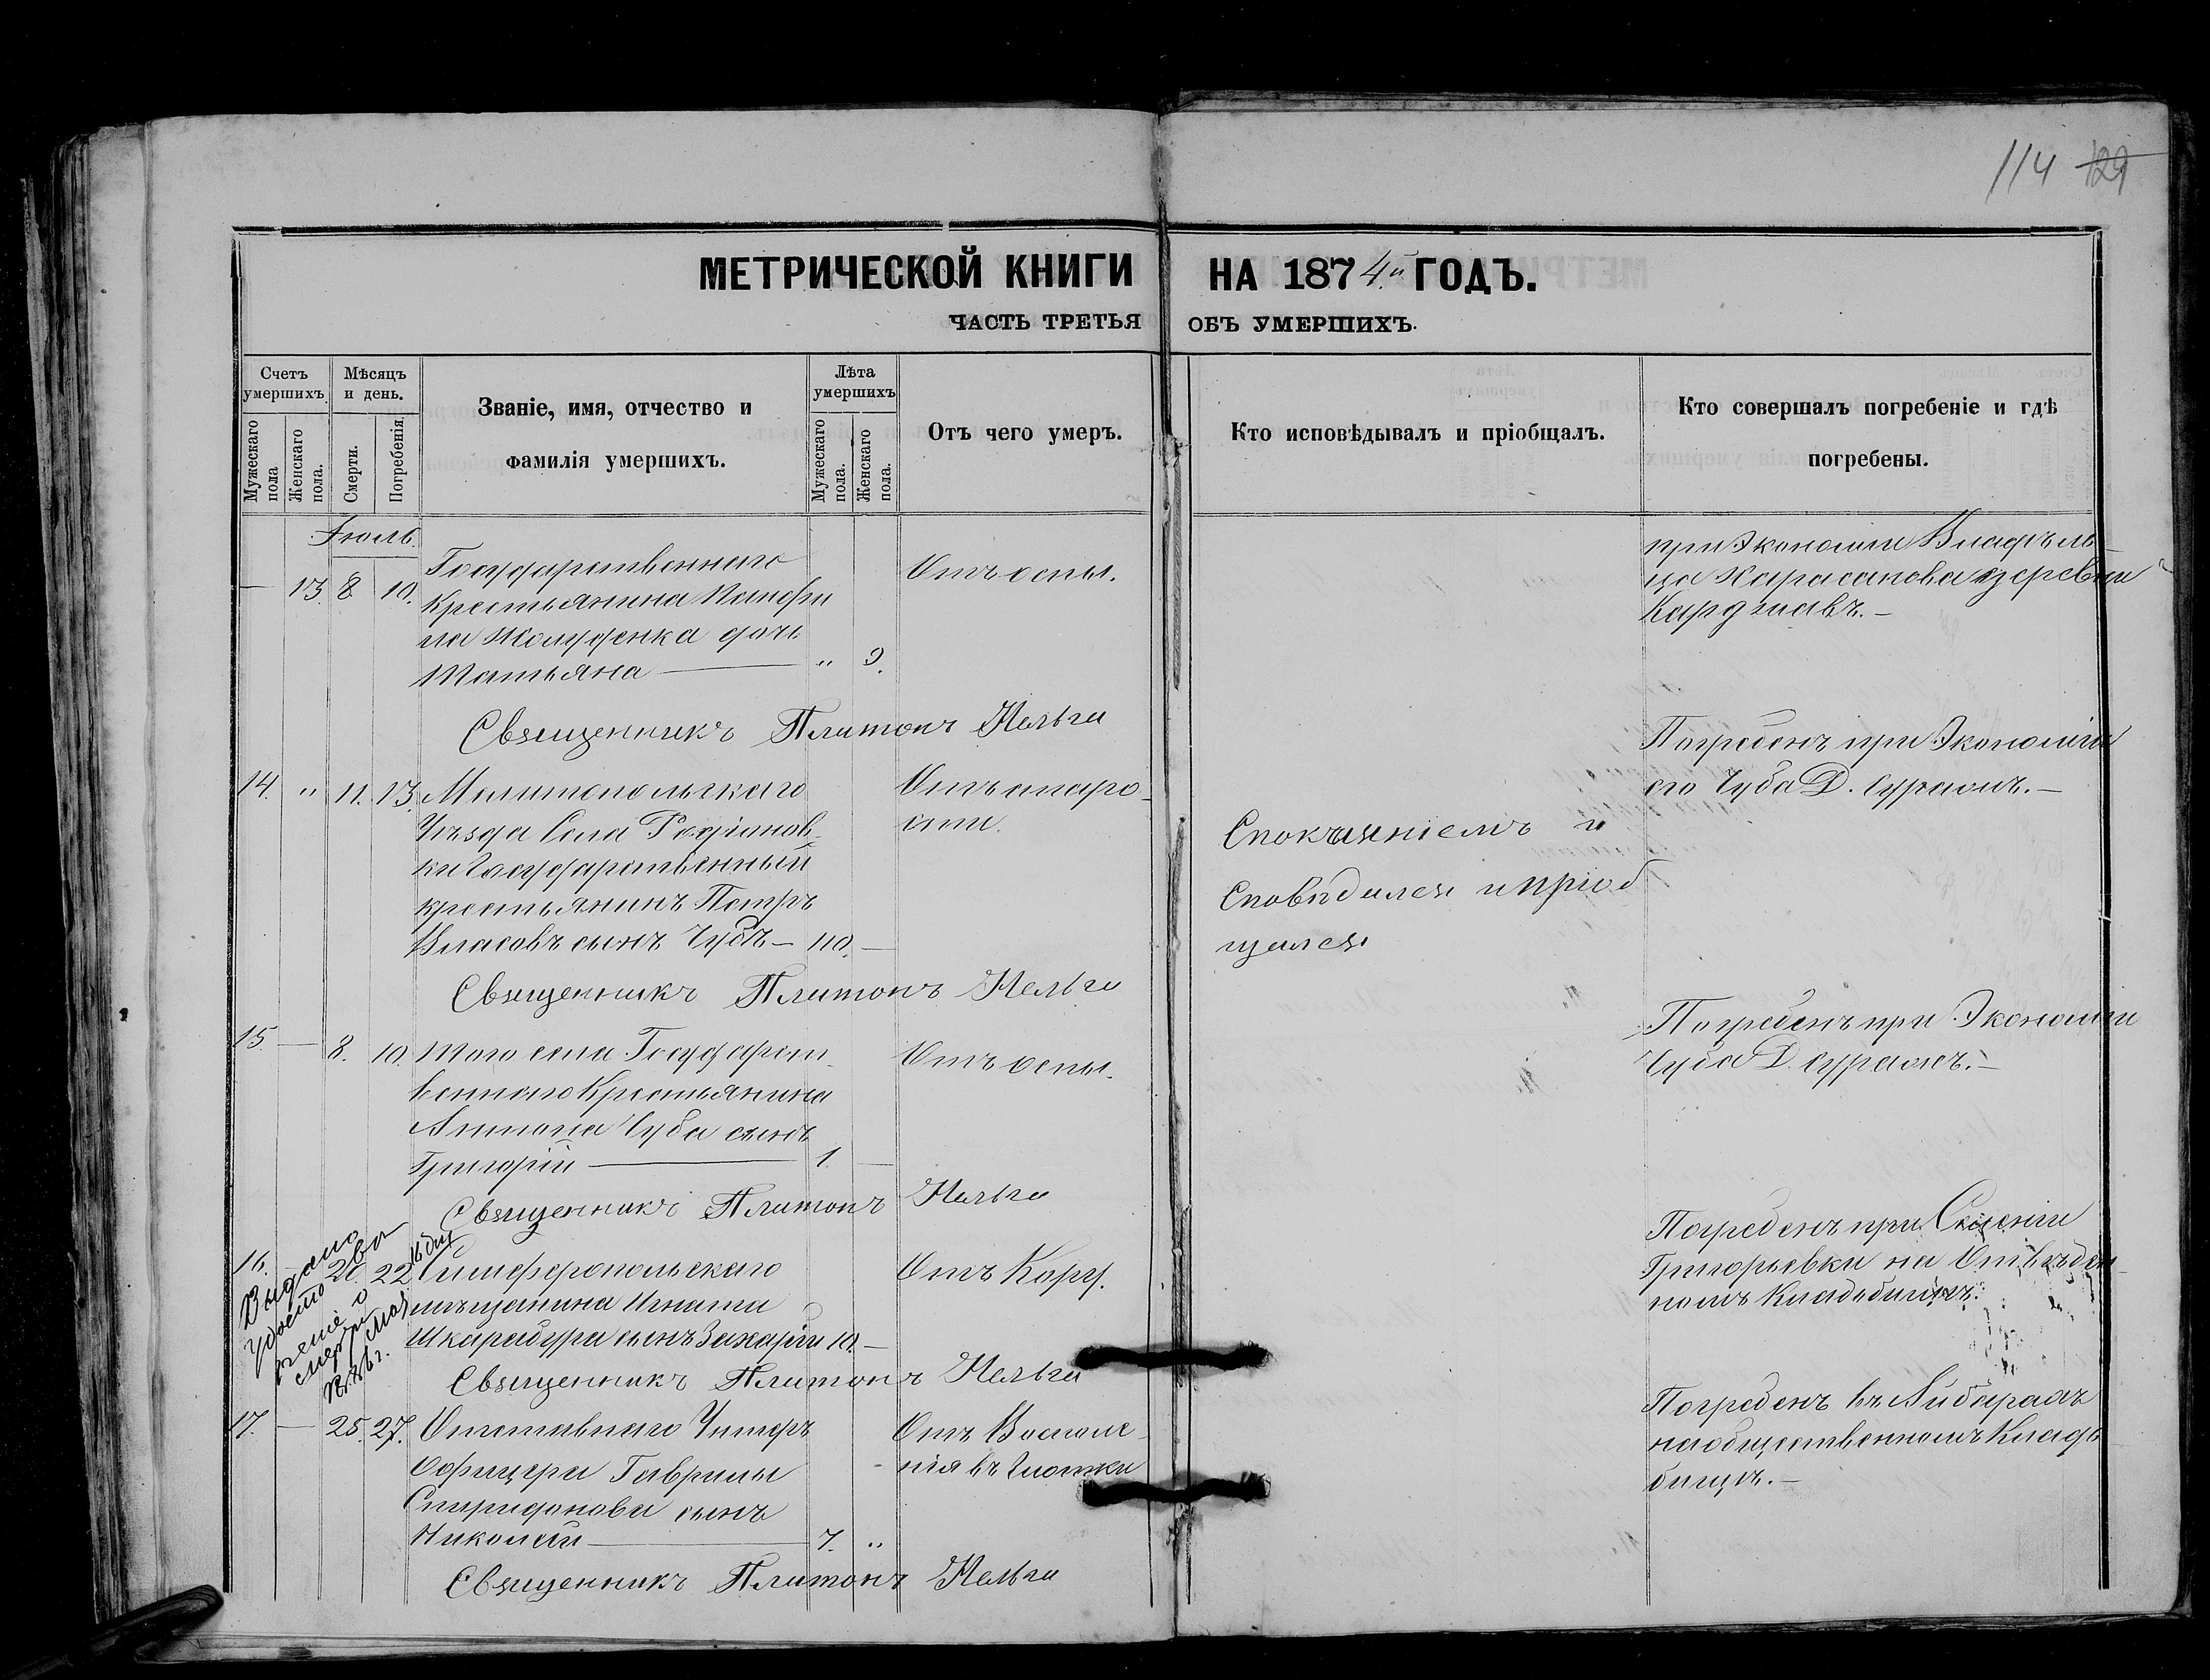 114 129
МЕТРИЧЕСКОЙ КНИГИ НА 1874й ГОДЪ.
ЧАСТЬ ТРЕТЬЯ ОБЪ УМЕРШИХЪ.
Счетъ умершихъ.
Мужескаго пола
Женскаго пола.
Мѣсяцъ и день.
Смерти.
Погребенія.
Званіе, имя, отчество и
фамилія умершихъ.
Лѣта умершихъ
Мужескаго пола.
Женскаго пола.
Отъ чего умеръ.
Кто исповѣдывалъ и пріобщалъ.
Кто совершалъ погребеніе и гдѣ
погребены.
Іюль.
— 13. 8. 10. Государственнаго
Крестьянина
дочь
Татьяна — " 9.
Отъ оспы.
при Экономіи Владѣль
ца деревни
Священникъ Платонъ
14. " 11. 13. Мелитопольскаго
Уѣзда Села Родіонов
ки Государственный
крестьянинъ Петръ
Власовъ сынъ Чубъ — 110. —
Отъ старо
сти.
Спокаяніемъ и
сповѣдался и пріоб
щался
Погребенъ при Экономіи
его Чуба Д.
Священникъ Платонъ
15. — 8. 10. Того села Государст
веннаго Крестьянина
Антона Чуба сынъ
Григорій — 1. —
Отъ оспы.
Погребенъ при Экономіи
Чуба Д.
Священникъ Платонъ
Выдано
удостовѣ
реніе о
смерти
16. — 20. 22. Симферопольскаго
мѣщанина Игната
Шкарабура сынъ Захарій 10. —
Отъ Кору.
Погребенъ при Селеніи
Григорьевки на Отведен
номъ Кладбищѣ.
Священникъ Платонъ
17. — 25. 27. Отставнаго Унтеръ
Офицера Гаврилы
Спиридонова сынъ
Николай — 7. "
Отъ Воспале
нія въ Глотки
Погребенъ въ
на общественномъ Клад
бищѣ. —
Священникъ Платонъ